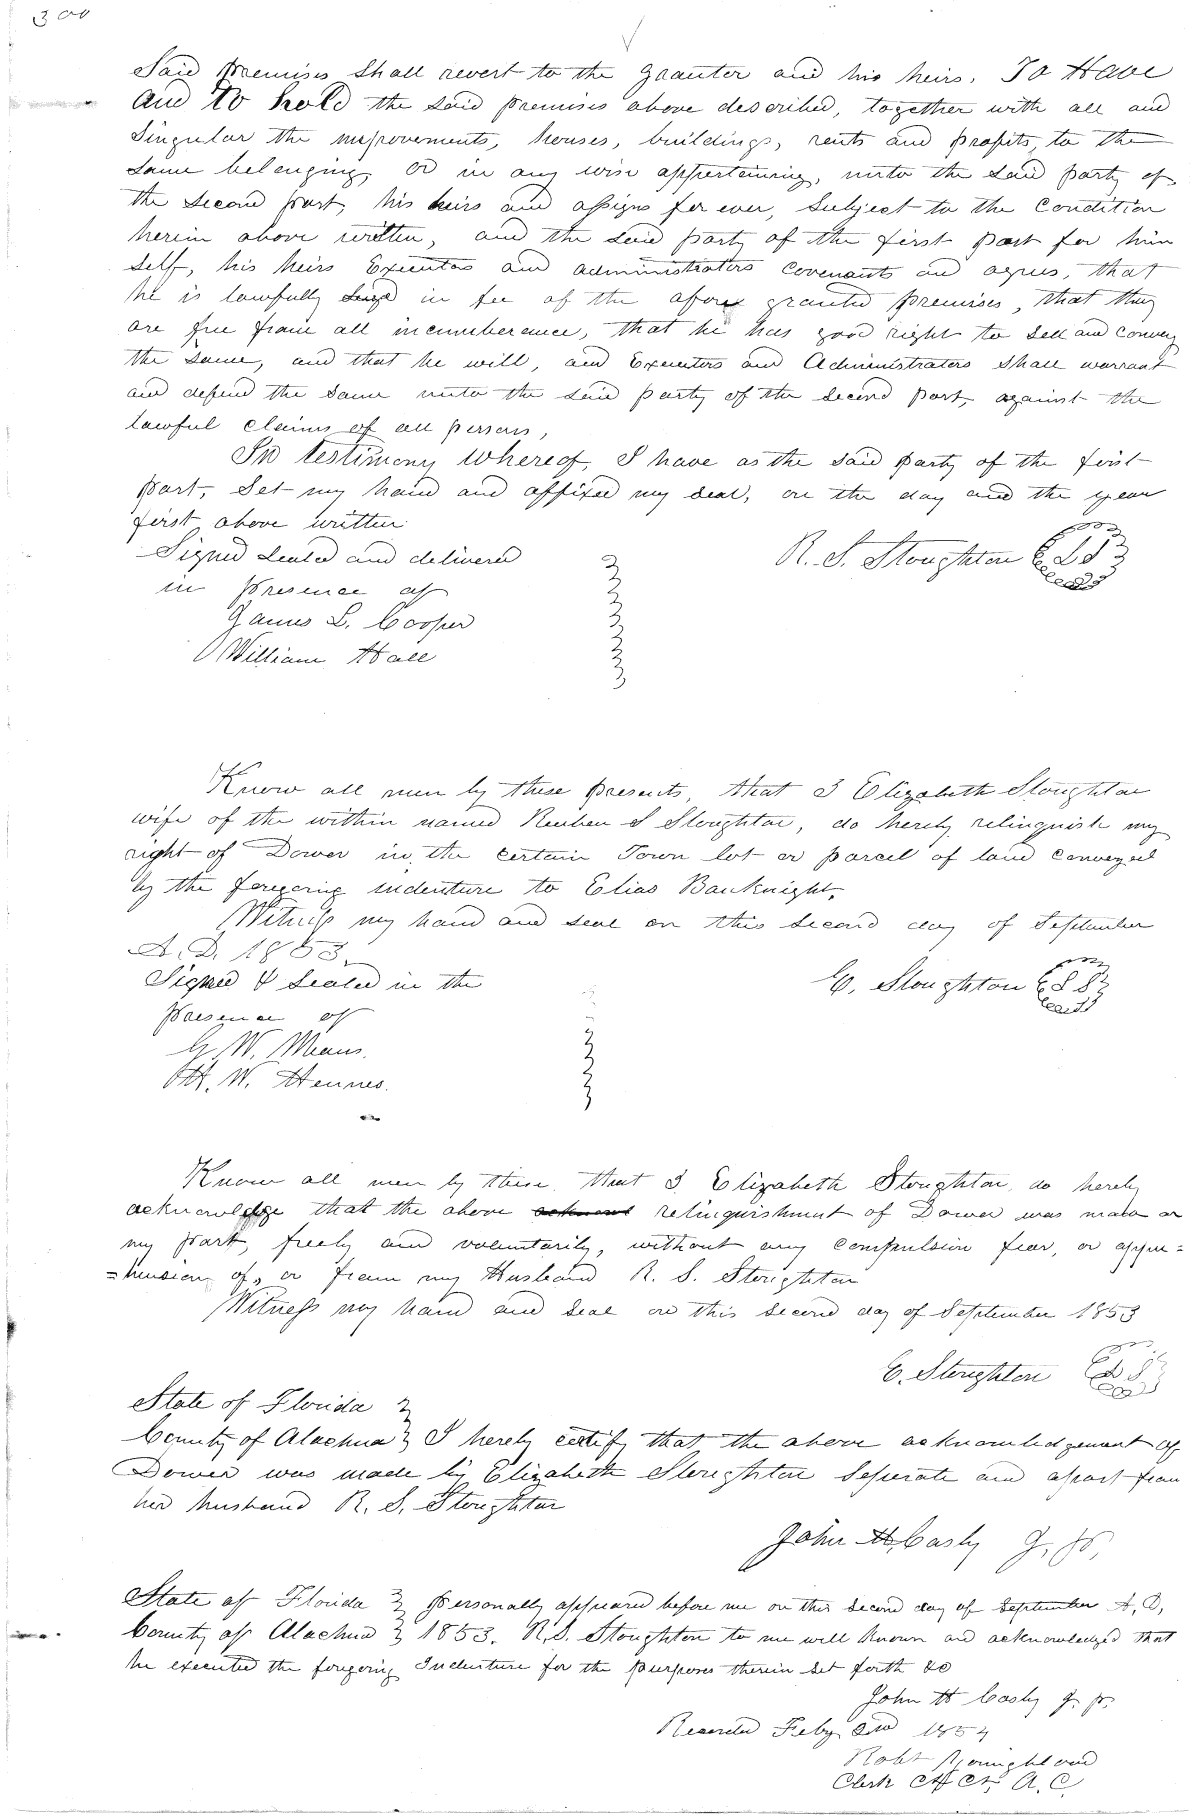 300
Said premises shall revert to the granter and his heirs. To Have
And To hold the said premises above described, together with all and
Singular the improvements, houses, buildings, rents and profits, to the
same belonging, or in any wise appertaining, unto the said party of
the second part, his heirs and assigns for ever, Subject to the Condition
herein above written, and the said party of the first part for him
self, his heirs Executors and administrators Covenants and agrees, that
he is lawfully Seized in fee of the afore granted premises, that they
are free from all incumberance, that he has good right to sell and convey
the same, and that he will, and Executors and Administrators shall warrant
and defend the same unto the said party of the second part, against the
lawful claims of all persons,
In testimony whereof, I have as the said party of the first
part, Set my hand and affixed my seal, on the day and the year
first above written
Signed Sealed and delivered
R. S. Stoughton L S
in presence of
James L. Cooper
William Hall
Know all men by these presents, that I Elizabeth Stoughton
wife of the within named Reuben S Stoughton, do hereby relinquish my
right of Dower in the certain Town lot or parcel of land conveyed
by the foregoing indenture to Elias Bauknight,
Witness my hand and seal on this second day of September
A. D. 1853.
Signed & Sealed in the
E. Stoughton L S
presence of
G. W. Means.
H. W. Hennes.
Know all men by these that I Elizabeth Stoughton do hereby
acknowledge that the above relinquishment of Dower was made on
my part, freely and voluntarily, without any compulsion fear, or appre=
=hension of, or from my Husband R. S. Stoughton
Witness my hand and seal on this second day of September 1853
E. Stoughton L S
State of Florida
County of Alachua I hereby certify that the above acknowledgement of
Dower was made by Elizabeth Stoughton Seperate and apart from
her husband R. S. Stoughton
John H. Casly J. P.
State of Florida Personally appeared before me on this second day of September A. D,
County of Alachua 1853. R. S. Stoughton to me well known and acknowledged that
he executed the foregoing Indenture for the purposes therein set forth &c
John H Casly J. P.
Recorded Feby 2nd 1854
Robt
Clerk Ct Ct. A. C.